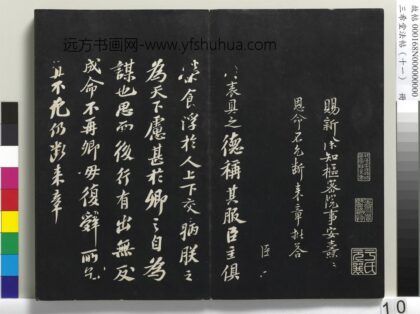 远方书画网-www.yfshuhua.com
故帖 000168N00000000
三希堂法帖（十一） 册
賜新除知樞密院事安燾
恩命不允斷来章批荅
臣
表具之德稱其服臣主俱
榮食浮於人上下交病朕之
為天下慮甚於卿之自為
謀也思而後行有出無反
成命不再卿毋復辭所乞
宜不允仍斷来章
10